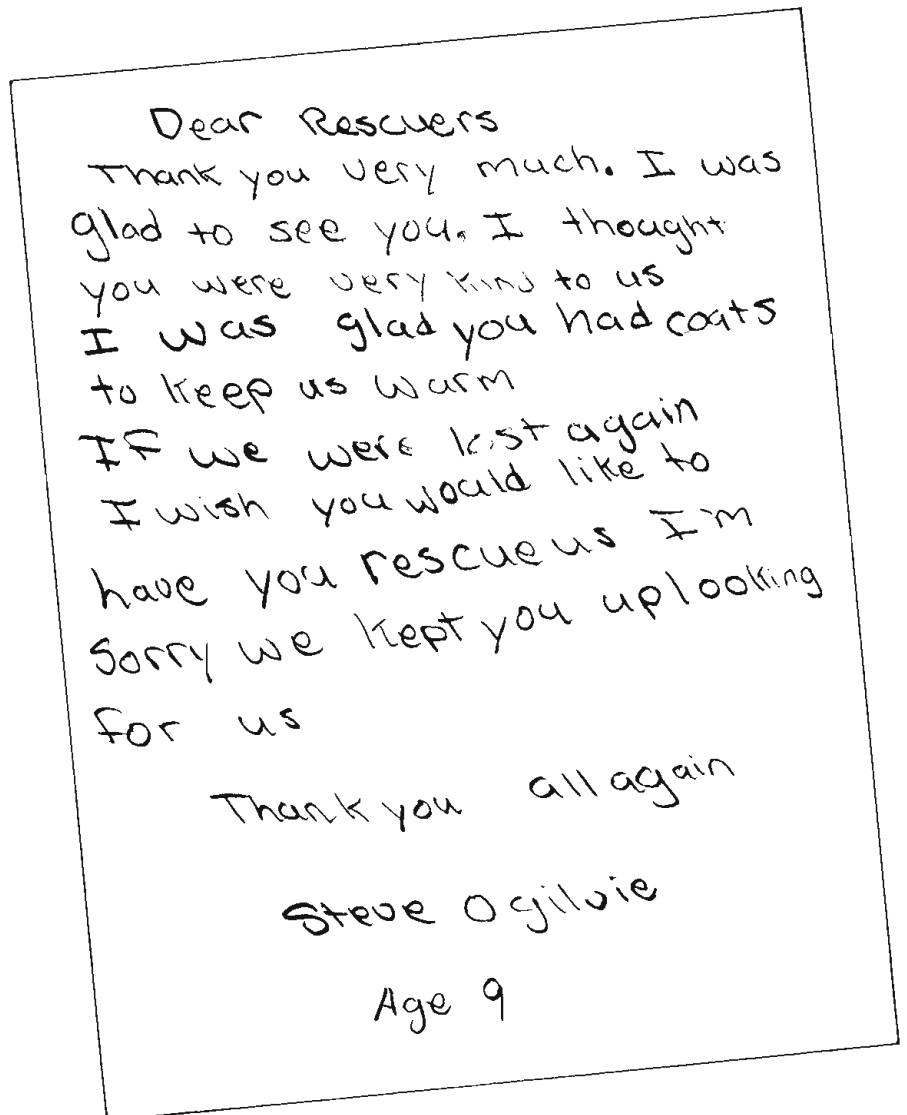 Dear Rescuers
Thank you very much. I was
glad to see you. I thought
you were very kind to us
I was glad you had coats
to keep us warm
If we were lost again
I wish you would like to
have you rescue us I'm
sorry we kept you up looking
for us
Thank you all again
Steve Ogilvie
Age 9